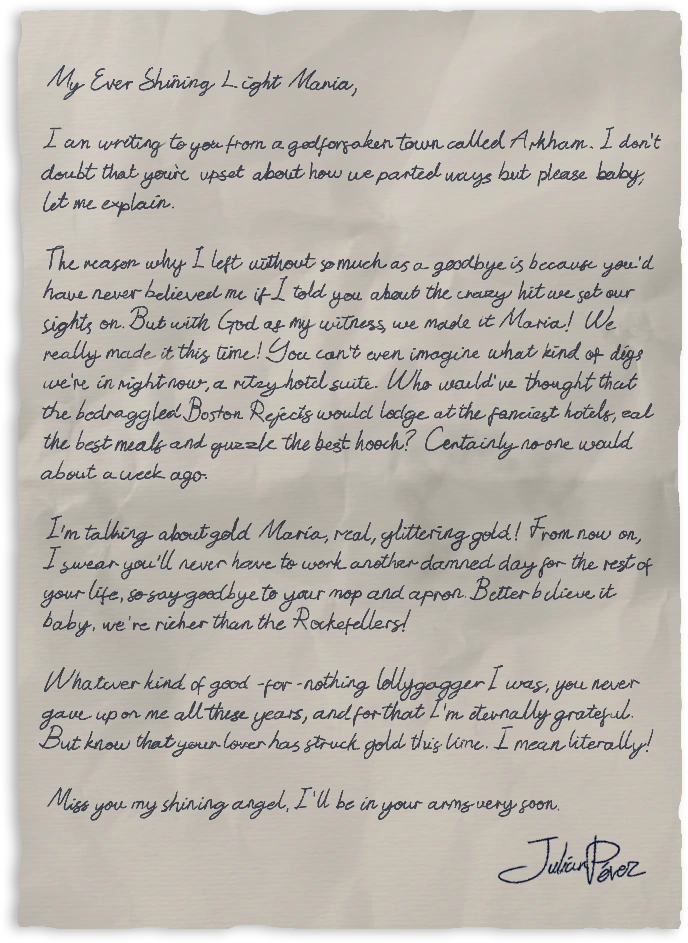 My Ever Shining Light Maria,
I am writing to you from a godforsaken town called Arkham. I don't
doubt that you're upset about how we parted ways but please baby,
let me explain.
The reason why I left without so much as a goodbye is because you'd
have never believed me if I told you about the crazy hit we set our
sights on. But with God as my witness, we made it Maria! We
really made it this time! You can't even imagine what kind of digs
we're in right now, a ritzy hotel suite. Who would've thought that
the bedraggled Boston Rejects would lodge at the fanciest hotels, eat
the best meals and guzzle the best hooch? Certainly no-one would
about a week ago.
I'm talking about gold Maria, real, glittering gold! From now on,
I swear you'll never have to work another damned day for the rest of
your life, so say goodbye to your mop and apron. Better believe it
baby, we're richer than the Rockefellers!
Whatever kind of good-for-nothing lollygagger I was, you never
gave up on me all these years, and for that I'm eternally grateful.
But know that your lover has struck gold this time. I mean literally!
Miss you my shining angel, I'll be in your arms very soon.
Julian Pérez